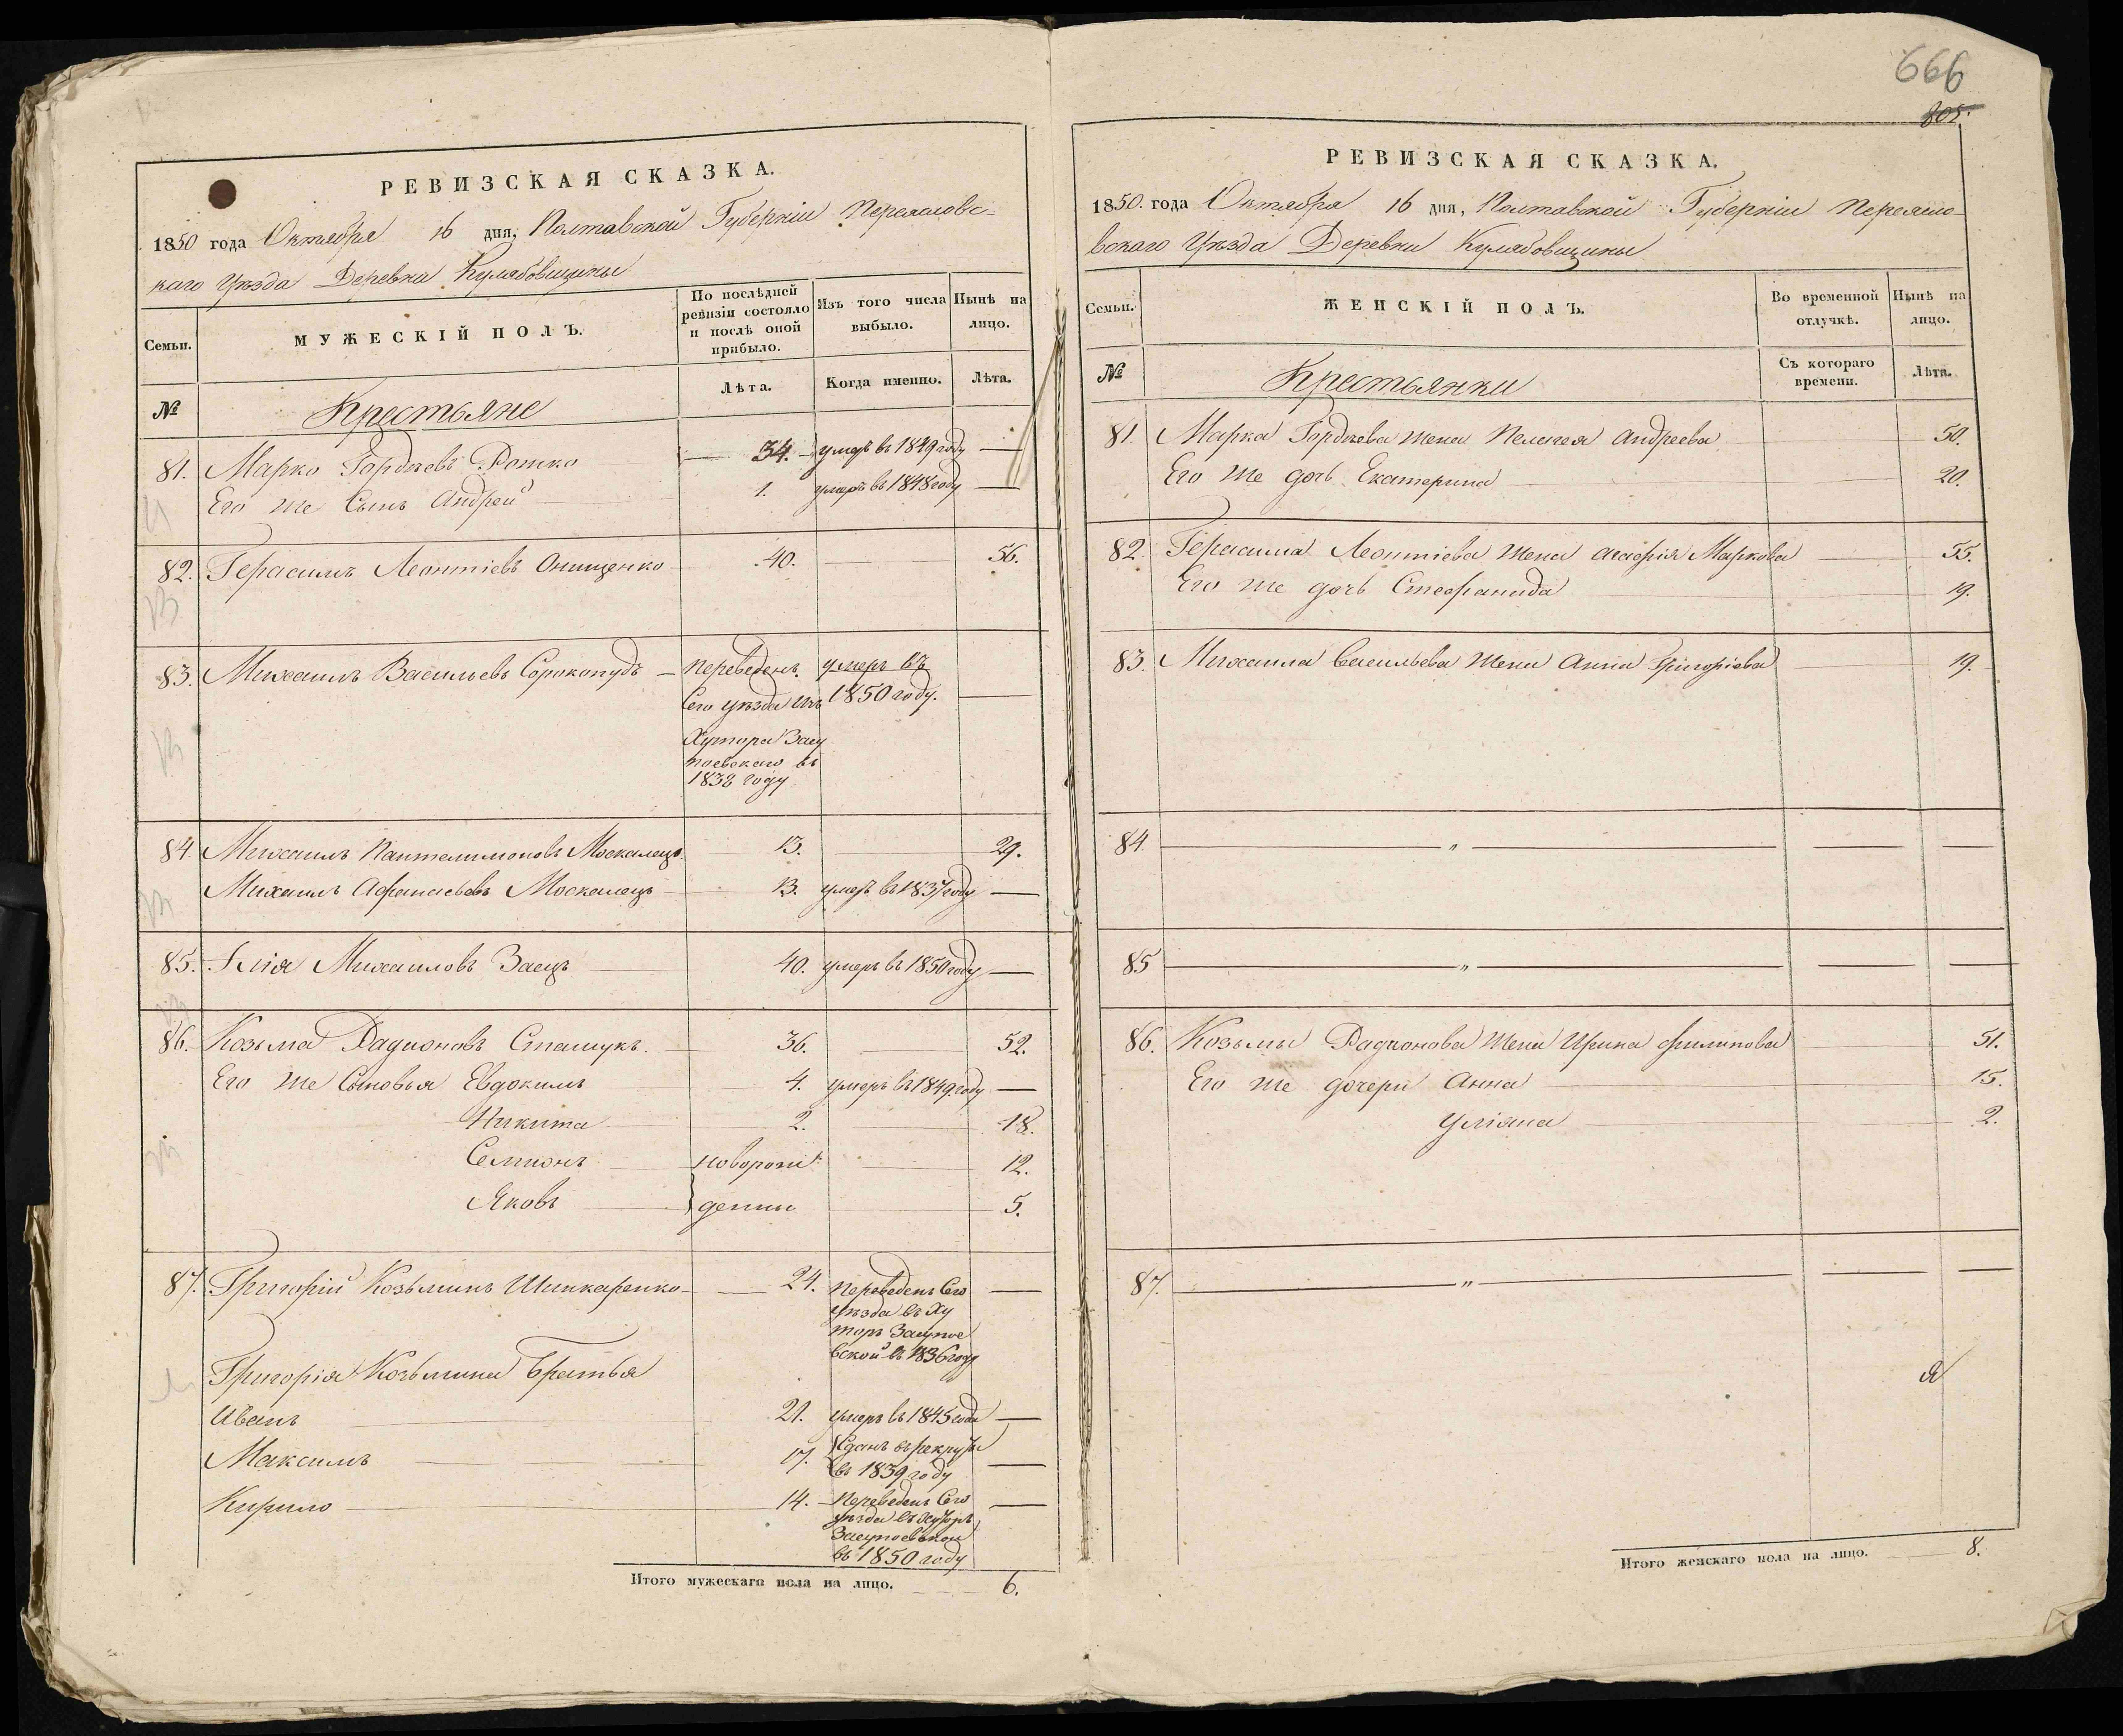 РЕВИЗСКАЯ СКАЗКА.
1850 года Октября 16 дня, Полтавской Губерніи Переяславс-
каго Уезда Деревни Кулябовщины
Семьи.
МУЖЕСКІЙ ПОЛЪ.
По послѣдней ревизіи состояло и послѣ оной прибыло.
Изъ того числа выбыло.
Нынѣ на лицо.
№
Крестьяне
Лѣта.
Когда именно.
Лѣта.
81. Марко Гордѣевъ Рожко — 34. — умеръ въ 1849 году —
Его же Сынъ Андрей 1. умеръ въ 1848 году —
82. Герасимъ Леонтіевъ Онищенко 40. — 56.
83. Михаилъ Васильевъ Сорокопудъ — переведенъ умеръ въ
Сего уезда изъ 1850 году. —
Хутора Засу
поевскаго въ
1838 году
84. Михаилъ Пантелимоновъ Москалецъ 13. — 29.
Михаилъ Афанасьевъ Москалецъ 13. умеръ въ 1837 году —
85. Илія Михаиловъ Заецъ 40. умеръ въ 1850 году —
86. Козьма Радионовъ Сташукъ. 36. — 52.
Его же Сыновья Евдокимъ 4. умеръ въ 1849 году —
Никита 2. — 18.
Семионъ новорож — 12.
Яковъ } денны — 5.
87. Григорій Козьминъ Шинкаренко — 24. переведенъ Сего —
уезда въ Ху
торъ Засупое
вской въ 1836 году
Григорія Козьмина братья
Иванъ 21. умеръ въ 1845 году —
Максимъ 17. Сданъ въ рекруты
въ 1839 году —
Кирило 14. — переведенъ Сего —
уезда въ Хуторъ
Засупоевской
въ 1850 году
Итого мужескаго пола на лицо. 6.
666
805.
РЕВИЗСКАЯ СКАЗКА.
1850. года Октября 16 дня, Полтавской Губерніи Переясла-
вскаго Уезда Деревни Кулябовщины
Семьи.
ЖЕНСКІЙ ПОЛЪ.
Во временной отлучкѣ.
Нынѣ на лицо.
№
Крестьянки
Съ котораго времени.
Лѣта.
81. Марка Гордѣева жена Пелагея Андреева 50.
Его же дочь Екатерина 20.
82. Герасима Леонтіева жена Агафія Маркова 55.
Его же дочь Стефанида 19.
83. Михаила Васильева жена Анна Григоріева 19.
84. — " — — —
85 — " — — —
86. Козьмы Радионова жена Ирина Филипова 51.
Его же дочери Анна 15.
Уліана 2.
87. — " — — —
Итого женскаго пола на лицо. 8.